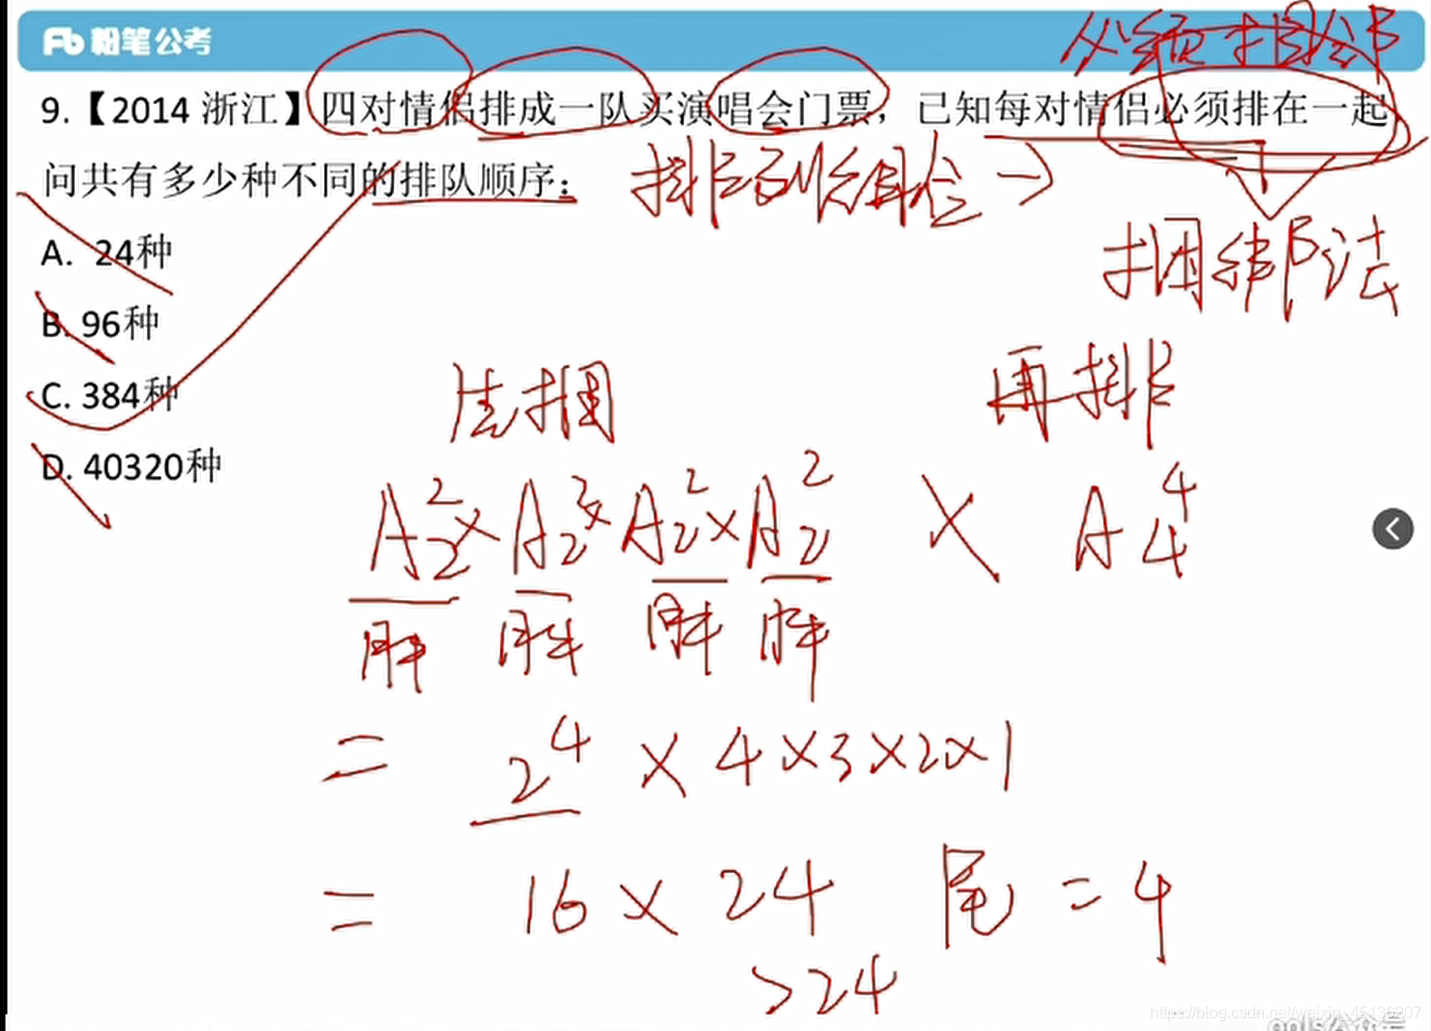 粉笔公考
必须捆绑
9.【2014 浙江】四对情侣排成一队买演唱会门票，已知每对情侣必须排在一起
问共有多少种不同的排队顺序：
排列组合→
捆绑法
A. 24种
B. 96种
C. 384种
D. 40320种
先捆 再排
A₂² × A₂² × A₂² × A₂² × A₄⁴
= 2⁴ × 4×3×2×1
= 16 × 24 尾 = 4
>24
https://blog.csdn.net/weixin_45136207